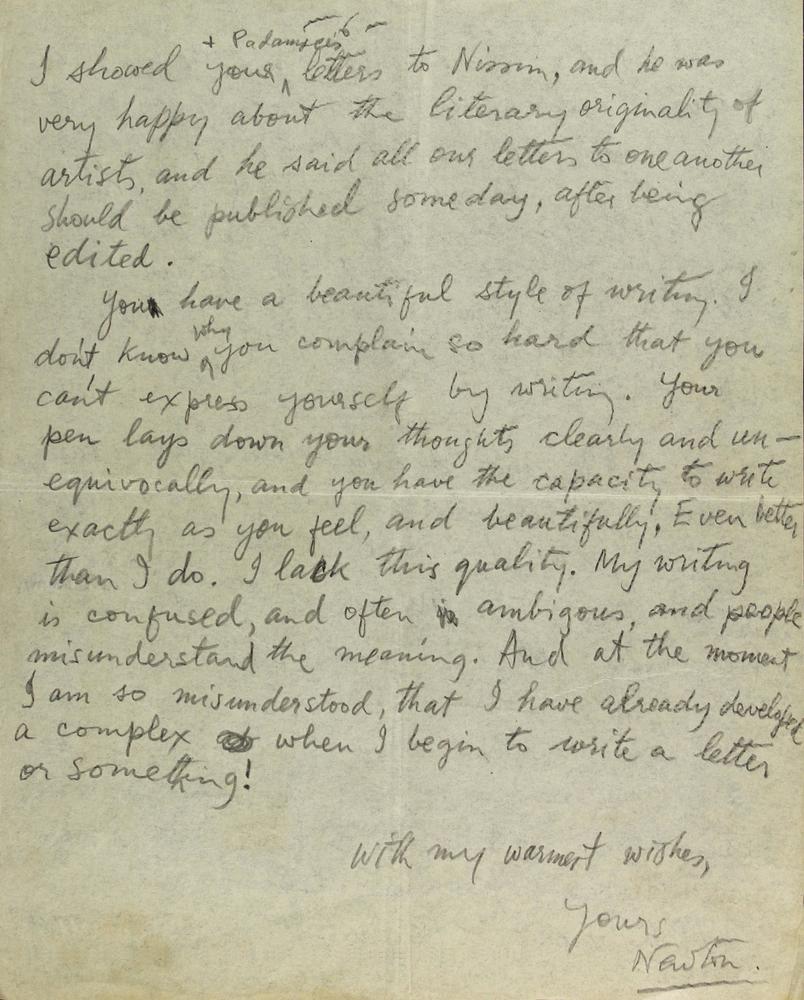 + Padamsee's
I showed your letters to Nissim, and he was
very happy about the literary originality of
artists, and he said all our letters to one another
should be published someday, after being
edited.
You have a beautiful style of writing. I
don't know why you complain so hard that you
can't express yourself by writing. Your
pen lays down your thoughts clearly and un-
equivocally, and you have the capacity to write
exactly as you feel, and beautifully. Even better
than I do. I lack this quality. My writing
is confused, and often ambigous, and people
misunderstand the meaning. And at the moment
I am so misunderstood, that I have already developed
a complex when I begin to write a letter
or something!
With my warmest wishes,
Yours
Newton.